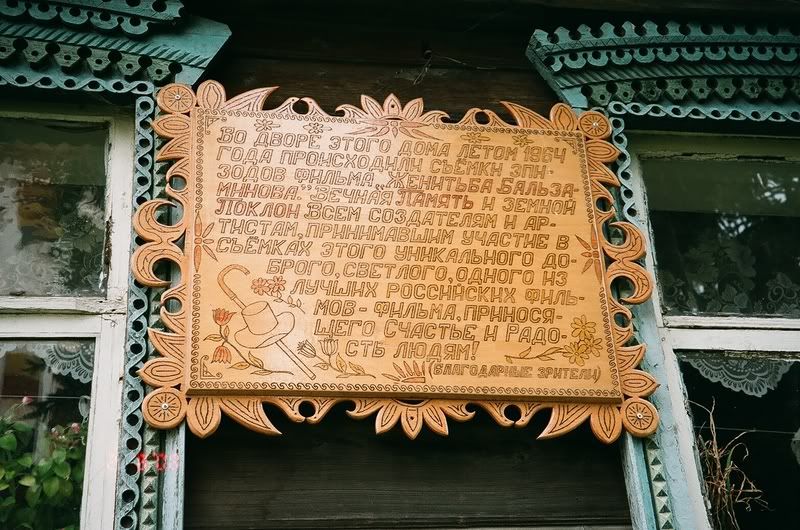 Во дворе этого дома летом 1964
года происходили съёмки эпи-
зодов фильма „Женитьба Бальза-
минова". Вечная память и земной
поклон всем создателям и ар-
тистам, принимавшим участие в
съёмках этого уникального до-
брого, светлого, одного из
лучших российских филь-
мов - фильма, принося-
щего Счастье и Радо-
сть людям!
(Благодарные зрители)